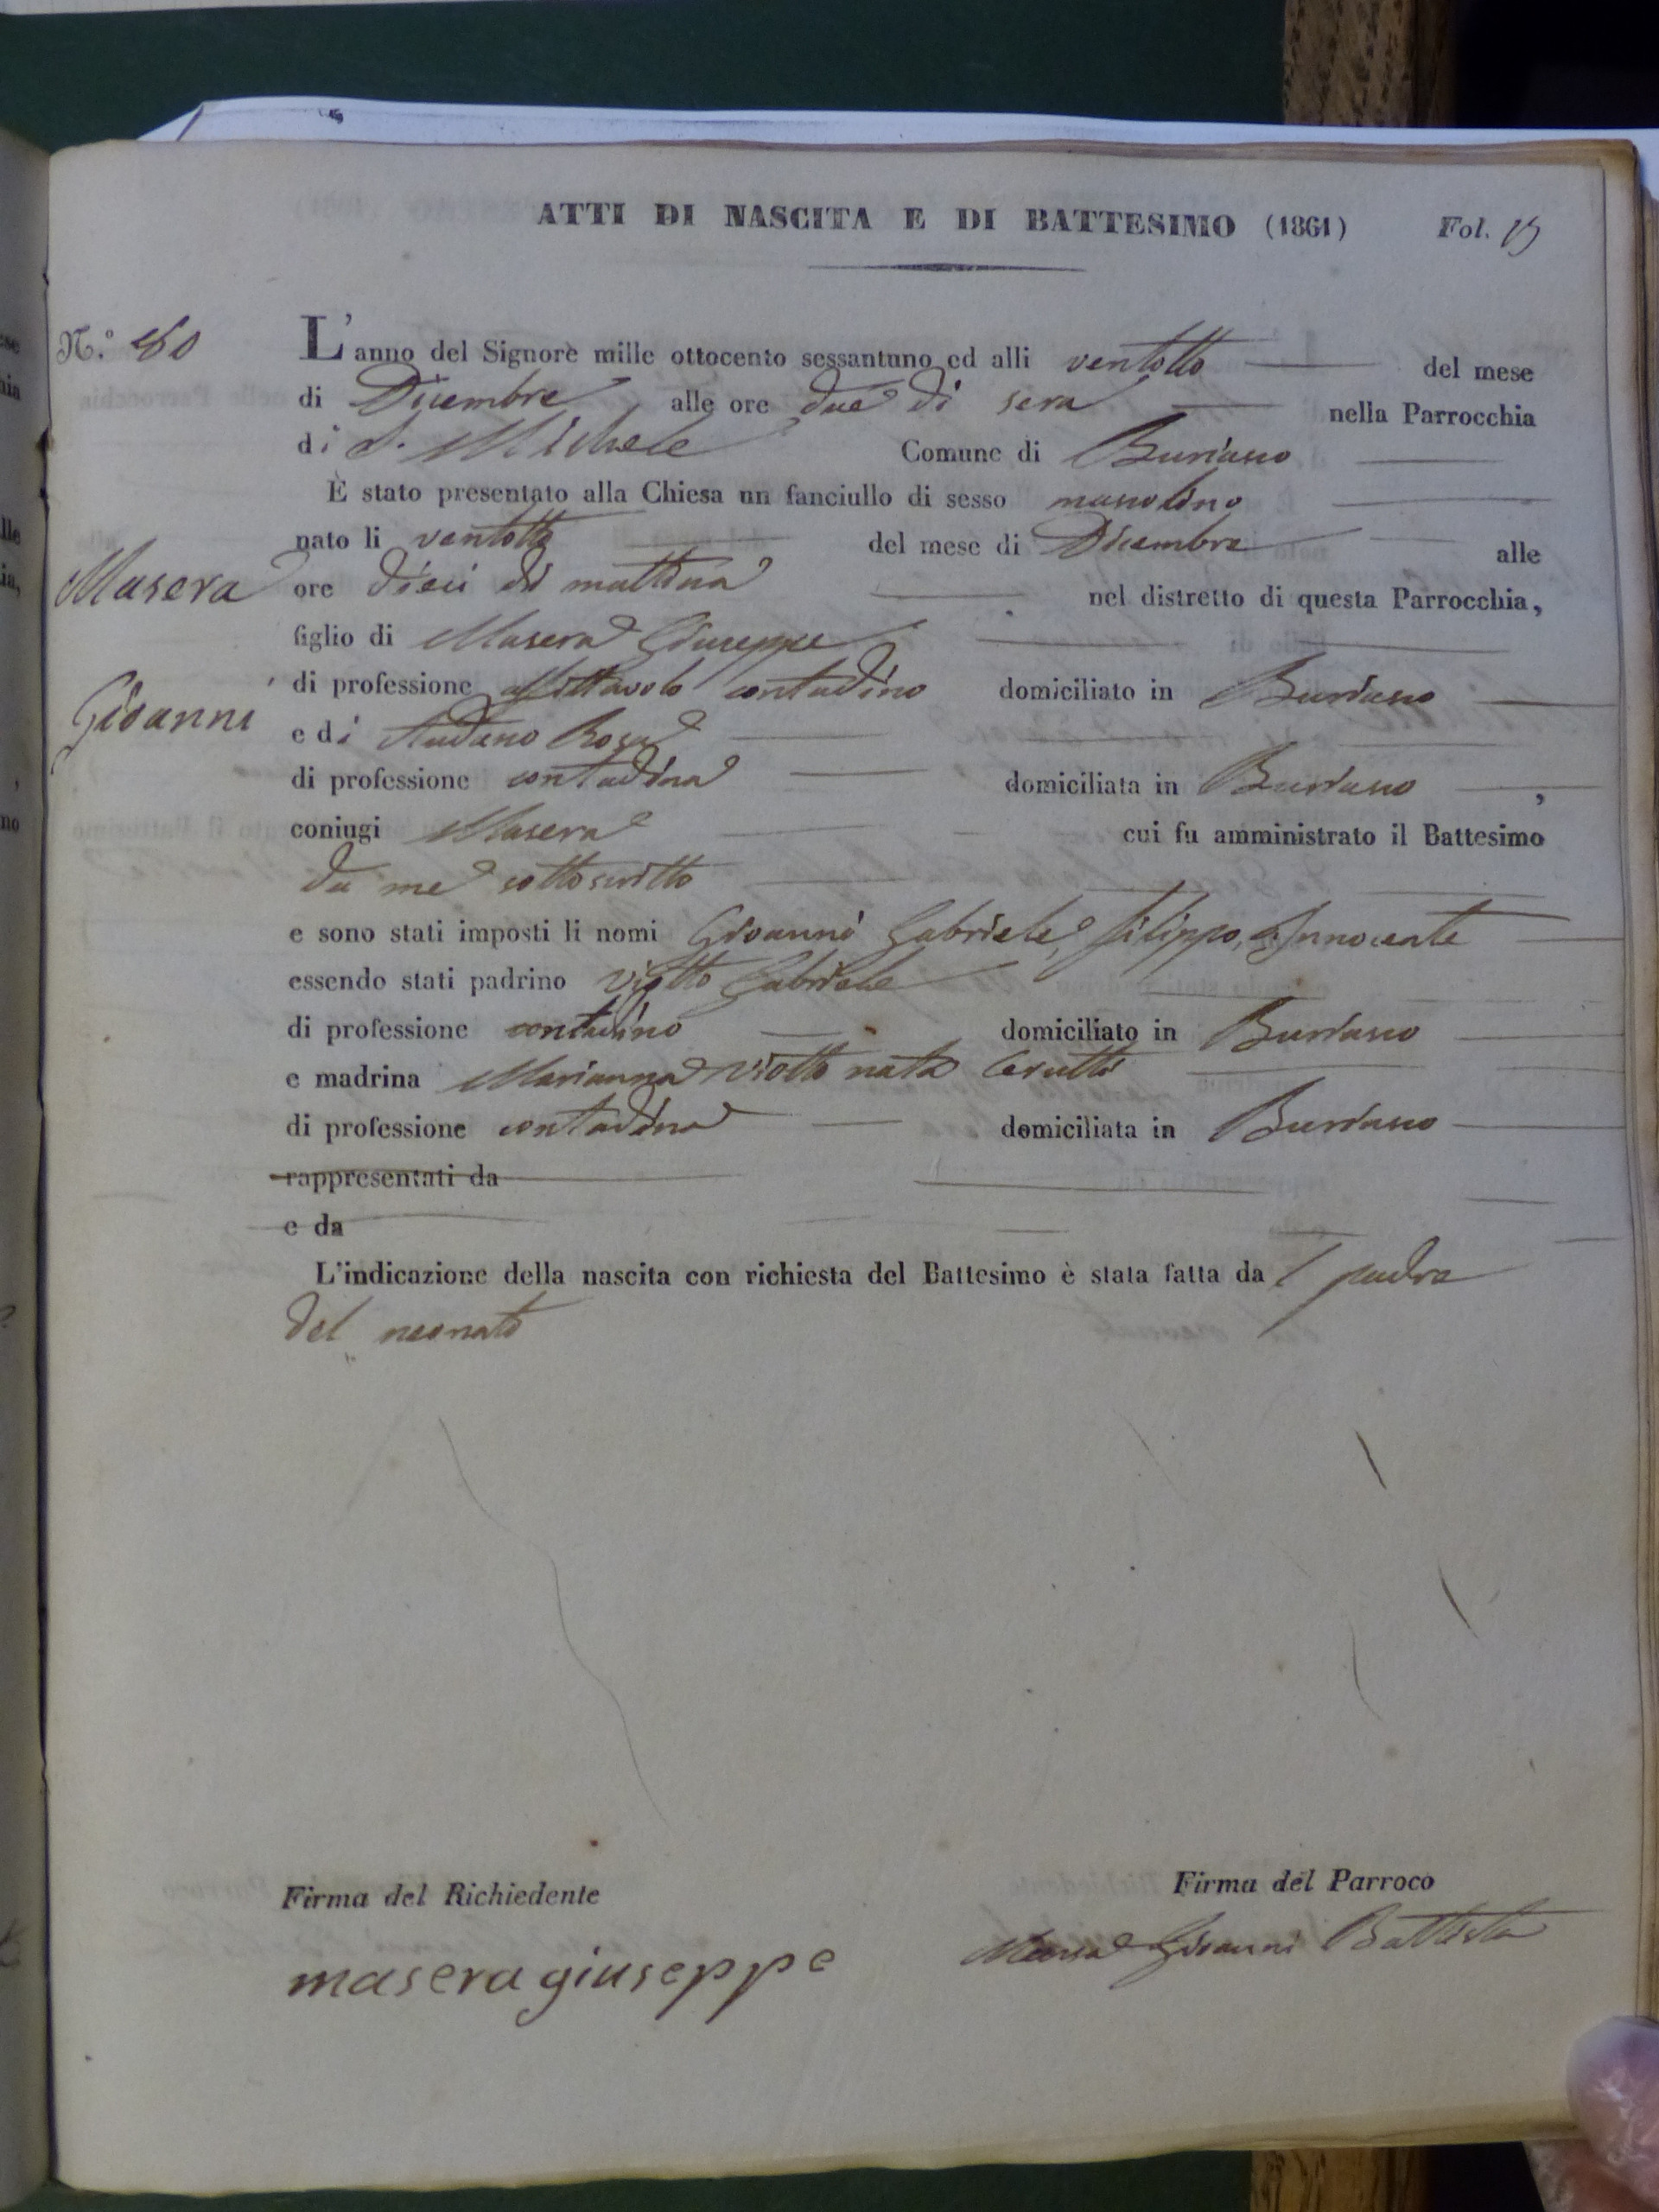 ATTI DI NASCITA E DI BATTESIMO (1861) Fol.
N.º
L'anno del Signore mille ottocento sessantuno ed alli ventotto del mese
di Dicembre alle ore due di sera nella Parrocchia
di S. Michele Comune di Buriasco
È stato presentato alla Chiesa un fanciullo di sesso mascolino
nato li ventotto del mese di Dicembre alle
Masera
ore dieci di mattina nel distretto di questa Parrocchia,
figlio di Masera Giuseppe
Giovanni
di professione affittavolo contadino domiciliato in Buriasco
e di Audano Rosa
di professione contadina domiciliata in Buriasco,
coniugi Masera cui fu amministrato il Battesimo
da me sottoscritto
e sono stati imposti li nomi Giovanni Gabriele, filippo, Innocente
essendo stati padrino viotto Gabriele
di professione contadino domiciliato in Buriasco
e madrina Marianna viotto nata Cerutti
di professione contadina domiciliata in Buriasco
rappresentati da
e da
L'indicazione della nascita con richiesta del Battesimo è stata fatta dal padre
del neonato
Firma del Richiedente Firma del Parroco
masera giuseppe Giovanni Battista